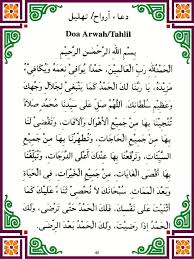 دعاء أرواح/ تهليل
Doa Arwah/Tahlil
بِسْمِ اللهِ الرَّحْمٰنِ الرَّحِيْمِ
اَلْحَمْدُلِلّٰهِ رَبِّ الْعَالَمِيْنَ، حَمْدًا يُوَافِيْ نِعَمَهُ وَيُكَافِئُ
مَزِيْدَهُ، يَا رَبَّنَا لَكَ الْحَمْدُ كَمَا يَنْبَغِيْ لِجَلَالِ وَجْهِكَ
وَعَظِيْمِ سُلْطَانِكَ. اَللّٰهُمَّ صَلِّ عَلَى سَيِّدِنَا مُحَمَّدٍ صَلَاةً
تُنْجِيْنَا بِهَا مِنْ جَمِيْعِ الْأَهْوَالِ وَالْآفَاتِ، وَتَقْضِيْ لَنَا بِهَا
جَمِيْعَ الْحَاجَاتِ، وَتُطَهِّرُنَا بِهَا مِنْ جَمِيْعِ
السَّيِّئَاتِ، وَتَرْفَعُنَا بِهَا عِنْدَكَ أَعْلَى الدَّرَجَاتِ، وَتُبَلِّغُنَا
بِهَا أَقْصَى الْغَايَاتِ مِنْ جَمِيْعِ الْخَيْرَاتِ فِي الْحَيَاةِ
وَبَعْدَ الْمَمَاتِ. سُبْحَانَكَ لَا نُحْصِيْ ثَنَاءً عَلَيْكَ كَمَا
أَثْنَيْتَ عَلَى نَفْسِكَ، فَلَكَ الْحَمْدُ حَتَّى تَرْضَى، وَلَكَ
الْحَمْدُ إِذَا رَضِيْتَ، وَلَكَ الْحَمْدُ بَعْدَ الرِّضَى.